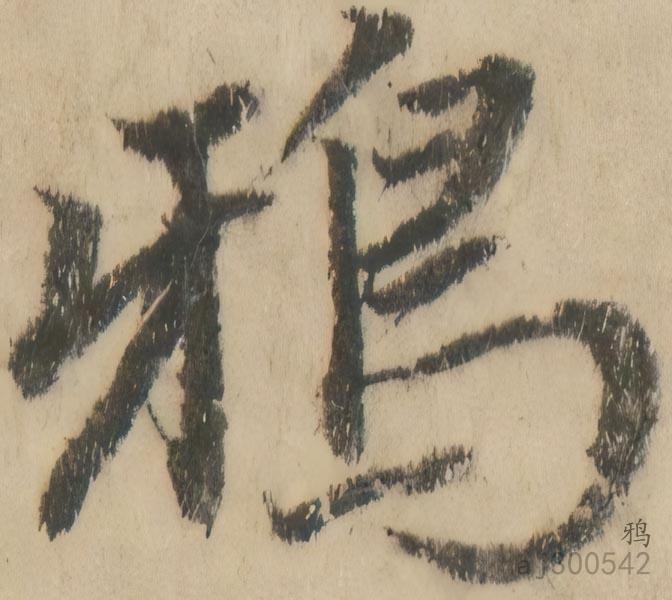 鴉
鸦
aj300542